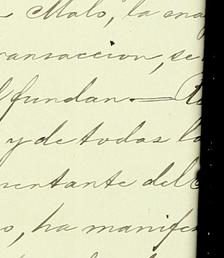 Malo, la ena
ransaccion, se
fundan.—
y de todas l
sentante del
o, ha manifes